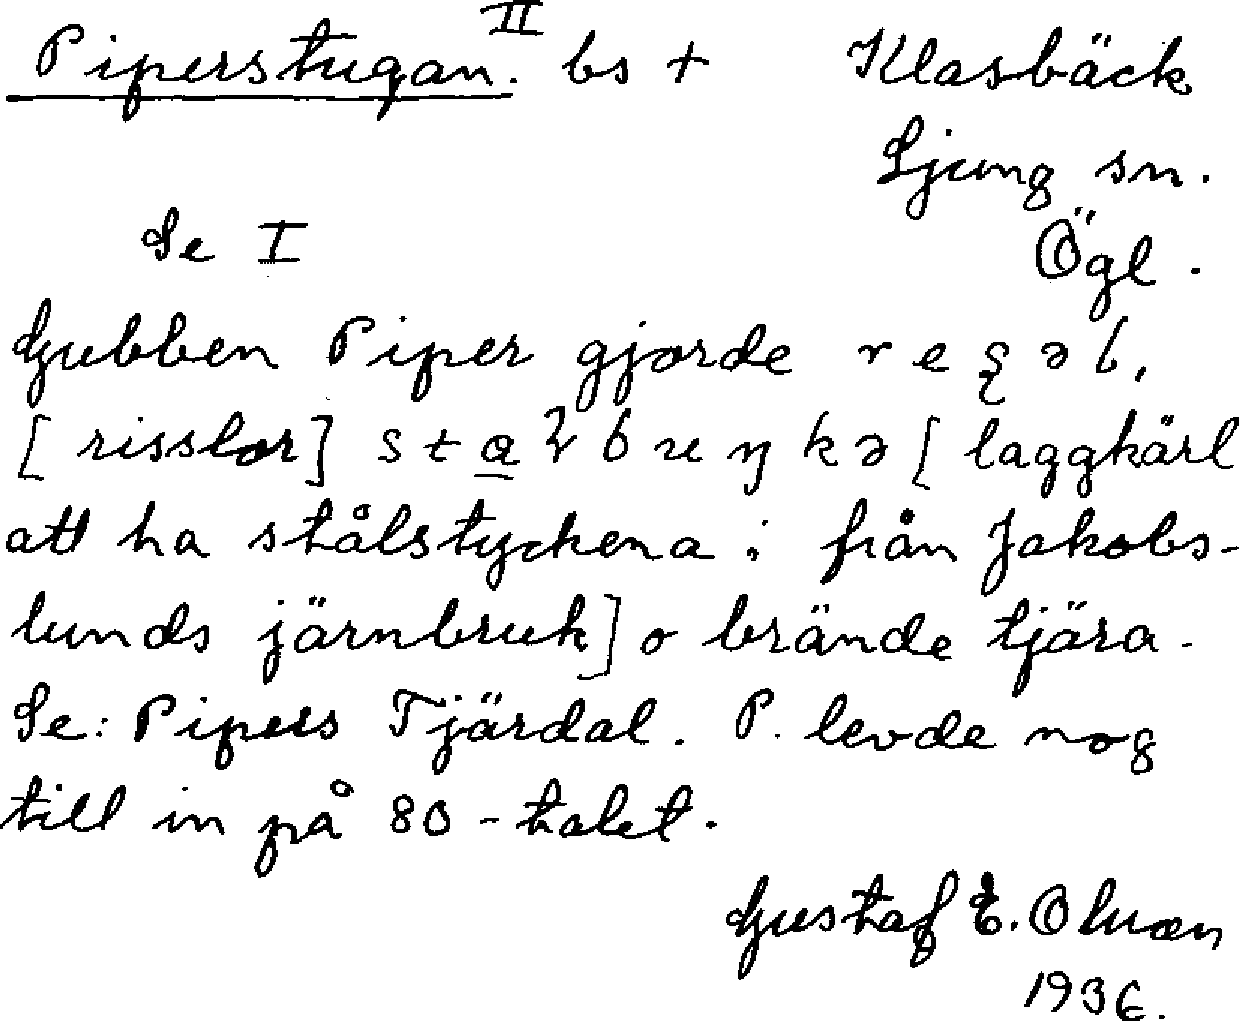 Piperstugan. II bs + Klasbäck
Ljung sn.
Se I Ögl.
Gubben Piper gjorde
[risslor] [laggkärl
att ha stålstyckena i från Jakobs-
lunds järnbruk] o brände tjära.
Se: Pipers Tjärdal. P. levde nog
till in på 80-talet.
Gustaf E.
1936.